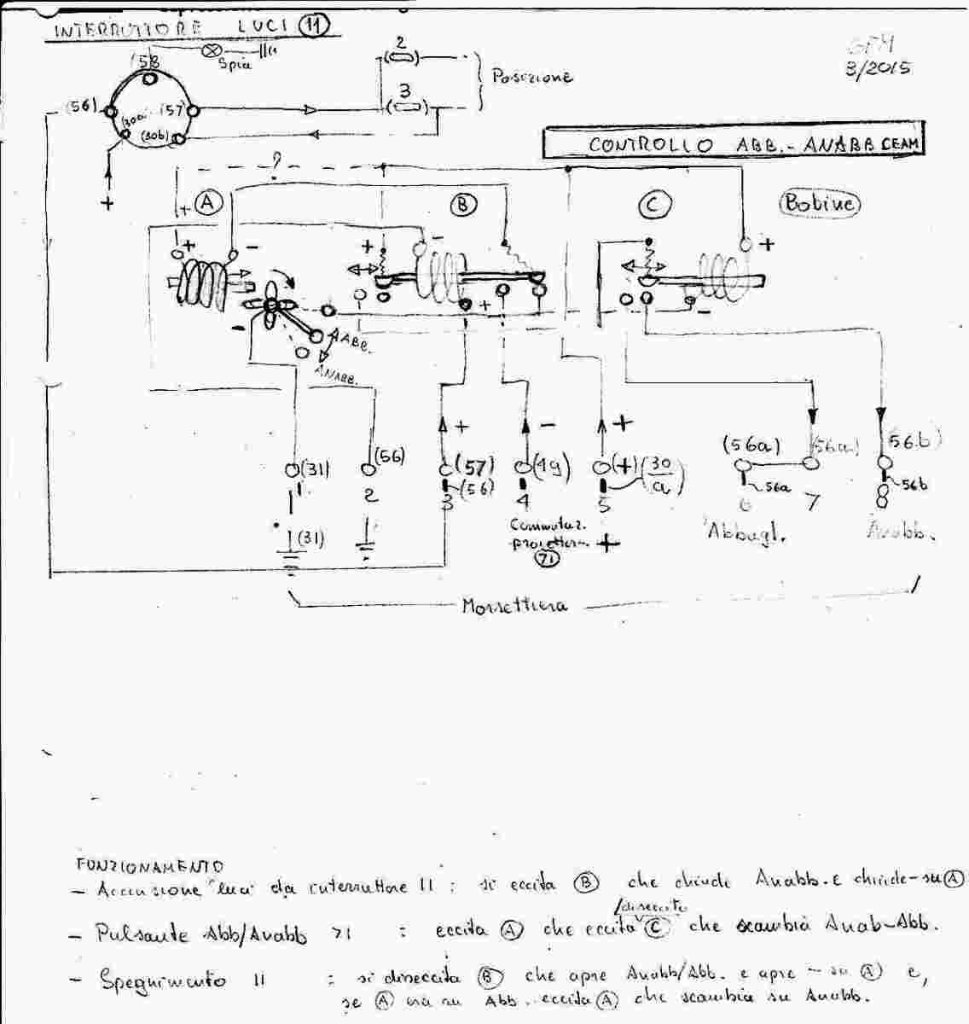 INTERRUTTORE LUCI 11
GFM
3/2015
(58
Spia
2
Posizione
3
(56)
(57)
(30a)
(30b)
+
CONTROLLO ABB.-ANABB CEAM
?
A
B
C
Bobine
+
+ - + - +
- + -
AABB.
ANABB.
+ - +
(31) (56) (57) (49) (+) (30/a) (56a) (56a) (56b)
(56) 56a 56b
1 2 3 4 5 6 7 8
(31)
Commutaz.
proiettori +
71
Abbagl. Anabb.
Morsettiera
FUNZIONAMENTO
- Accensione "luci" da interruttore 11 : si eccita B che chiude Anabb. e chiude - su A
/diseccita
- Pulsante Abb/Anabb 71 : eccita A che eccita C che scambia Anab-Abb.
- Spegnimento 11 : si diseccita B che apre Anabb/Abb. e apre - su A e,
se A era su Abb. eccita A che scambia su Anabb.